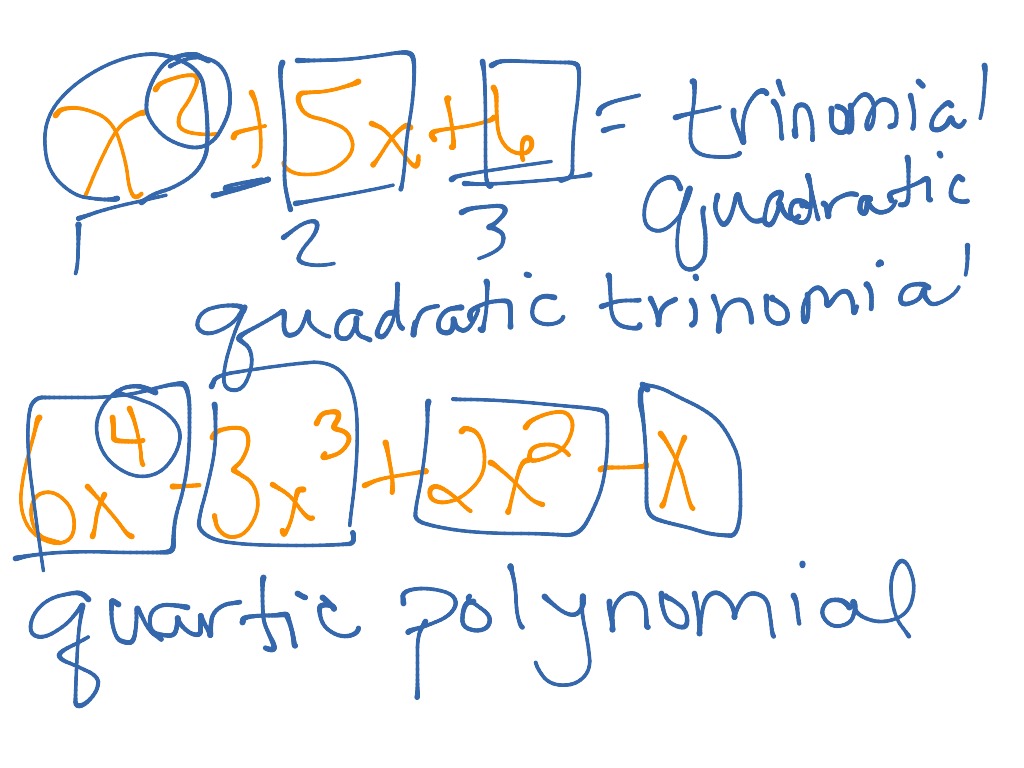 x² + 5x + 6 = trinomial
quadratic
1 2 3
quadratic trinomial
6x⁴ - 3x³ + 2x² - x
quartic polynomial